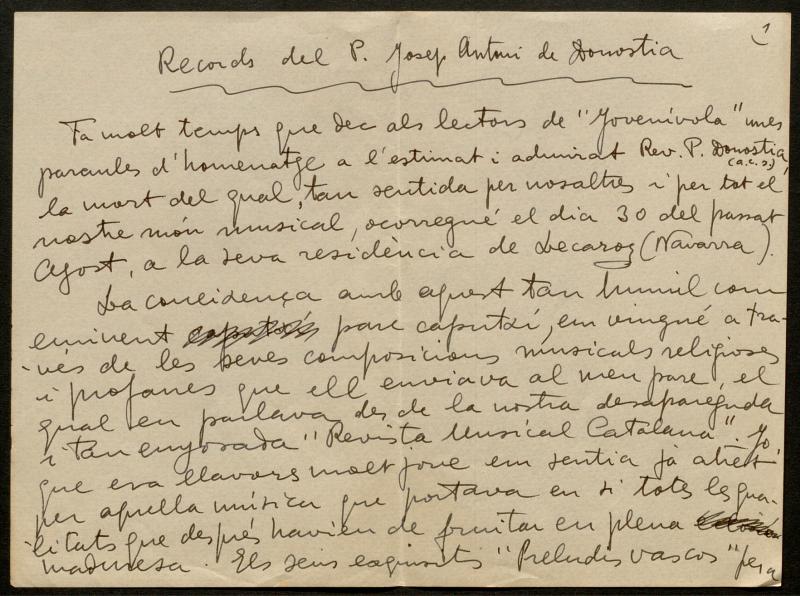 1
Records del P. Josep Antoni de Donostia
Fa molt temps que dec als lectors de "Jovenívola" unes
paraules d'homenatge a l'estimat i admirat Rev. P. Donostia
(a.c.s.)
la mort del qual, tan sentida per nosaltres i per tot el
nostre món musical, ocorregué el dia 30 del passat
Agost, a la seva residència de Lecaroz (Navarra).
La coneidença amb aquest tan humil com
eminent pare caputxí, em vingué a tra-
vés de les seves composicions musicals religioses
i profanes que ell enviava al meu pare, el
qual en parlava des de la nostra desapareguda
i tan enyorada "Revista Musical Catalana". Jo,
que era llavors molt jove em sentia ja atret
per aquella música que portava en si totes les qua-
litats que després havien de fruitar en plena
maduresa. Els seus exquisits "Preludis vascos" per a